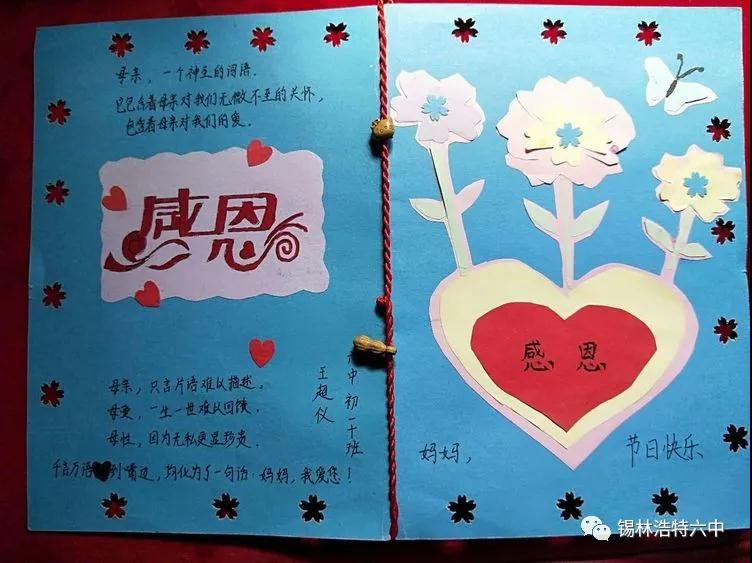 母亲，一个神圣的词语.
它包含着母亲对我们无微不至的关怀，
包含着母亲对我们的爱。
感恩
母亲，只言片语难以描述。
母爱，一生一世难以回馈。
母性，因为无私更显珍贵.
千言万语 到嘴边，均化为了一句话：妈妈，我爱您！
六中初一十班
王超仪
感 恩
妈妈，
节日快乐
锡林浩特六中